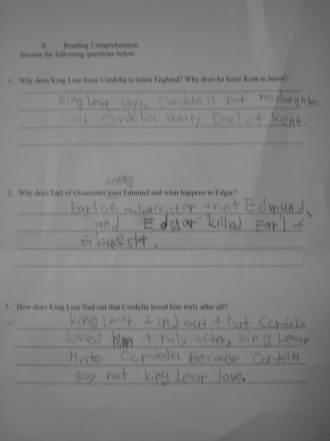 II. Reading Comprehension
Answer the following questions below.
1. Why does King Lear force Cordelia to leave England? Why does he force Kent to leave?
King Lear says, Cordelia is not my daughter,
and Cordelia marry Earl of Kent.
2. Why does Earl of Gloucester trust Edmund and what happens to Edgar?
Earl of trust Edmund,
and Edgar killed Earl of
3. How does King Lear find out that Cordelia loved him truly after all?
King Lear find out that Cordelia
loved him truly after, King Lear
hate Cordelia Because Cordelia
say not King Lear love.